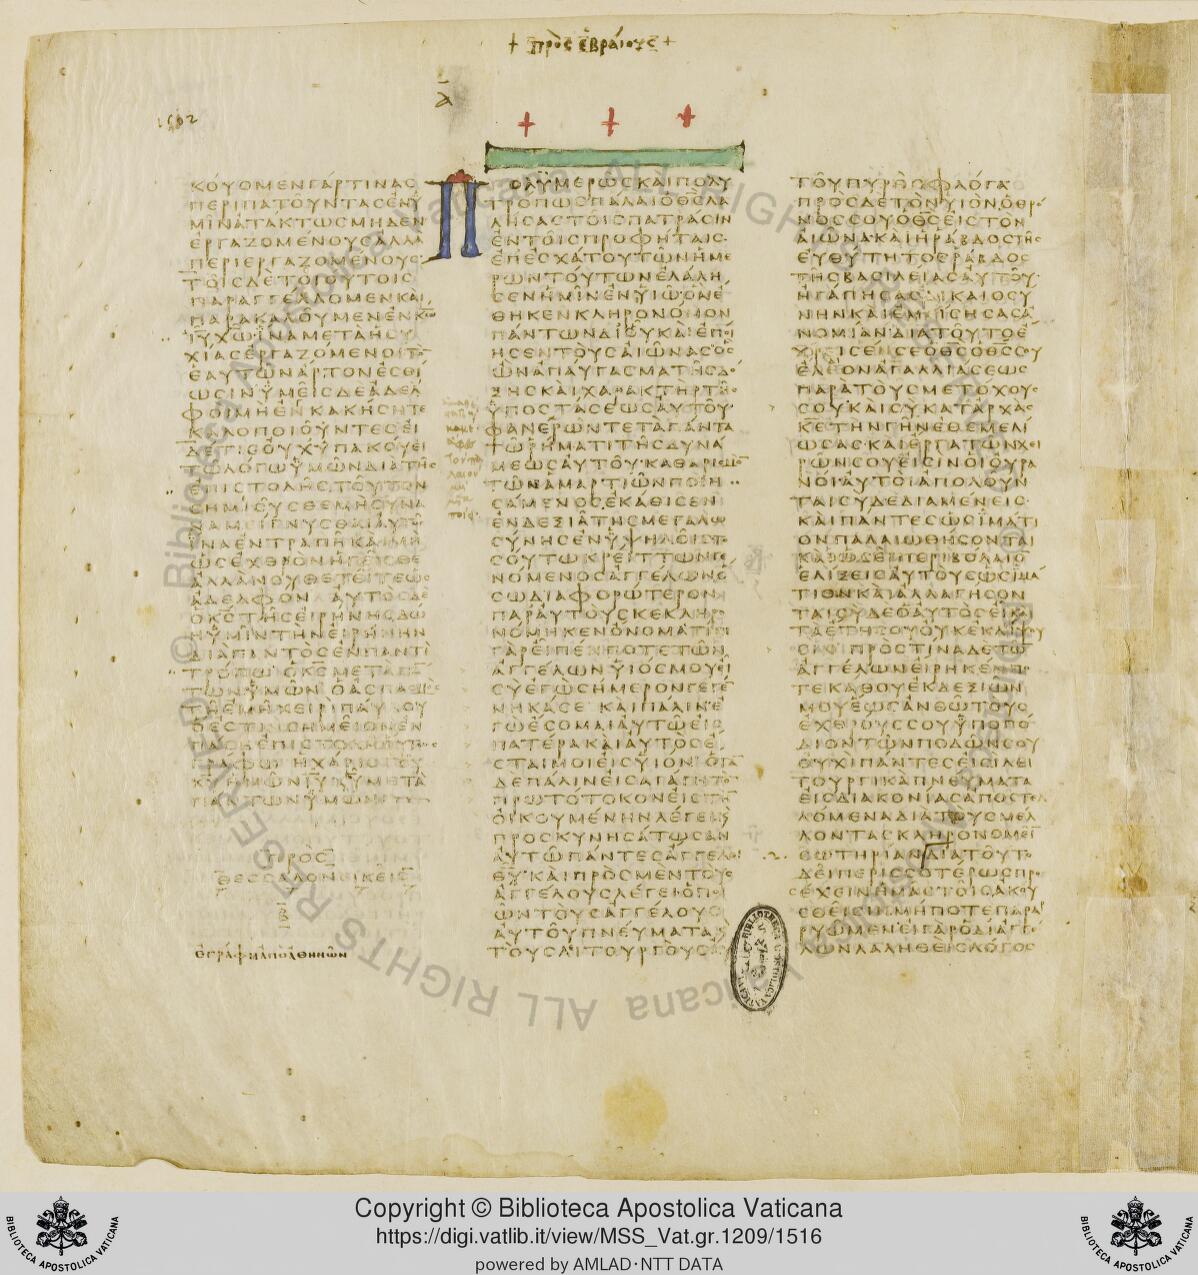 + πρὸς ἑβραίους +
1512
ΚΟΥΟΜΕΝΓΑΡΤΙΝΑΣ
ΠΕΡΙΠΑΤΟΥΝΤΑΣΕΝΥ
ΜΙΝΑΤΑΚΤΩΣΜΗΔΕΝ
ΕΡΓΑΖΟΜΕΝΟΥΣΑΛΛΑ
ΠΕΡΙΕΡΓΑΖΟΜΕΝΟΥΣ
ΤΟΙΣΔΕΤΟΙΟΥΤΟΙΣ
ΠΑΡΑΓΓΕΛΛΟΜΕΝΚΑΙ
ΠΑΡΑΚΑΛΟΥΜΕΝΕΝΚΩ
ΙΥΧΩΙΝΑΜΕΤΑΗΣΥ
ΧΙΑΣΕΡΓΑΖΟΜΕΝΟΙΤΟ
ΕΑΥΤΩΝΑΡΤΟΝΕΣΘΙ
ΩΣΙΝΥΜΕΙΣΔΕΑΔΕΛ
ΦΟΙΜΗΕΝΚΑΚΗΣΗΤΕ
ΚΑΛΟΠΟΙΟΥΝΤΕΣΕΙ
ΔΕΤΙΣΟΥΧΥΠΑΚΟΥΕΙ
ΤΩΛΟΓΩΥΜΩΝΔΙΑΤΗΣ
ΕΠΙΣΤΟΛΗΣΤΟΥΤΟΝ
ΣΗΜΙΟΥΣΘΕΜΗΣΥΝΑ
ΝΑΜΙΓΝΥΣΘΑΙΑΥΤΩ
ΙΝΑΕΝΤΡΑΠΗΚΑΙΜΗ
ΩΣΕΧΘΡΟΝΗΓΕΙΣΘΕ
ΑΛΛΑΝΟΥΘΕΤΕΙΤΕΩΣ
ΑΔΕΛΦΟΝ ΑΥΤΟΣΔΕ
ΟΚΣΤΗΣΕΙΡΗΝΗΣΔΩ
ΗΥΜΙΝΤΗΝΕΙΡΗΝΗΝ
ΔΙΑΠΑΝΤΟΣΕΝΠΑΝΤΙ
ΤΡΟΠΩ ΟΚΣΜΕΤΑΠΑ
ΤΩΝΥΜΩΝ ΟΑΣΠΑΣΜΟΣ
ΤΗΕΜΗΧΕΙΡΙΠΑΥΛΟΥ
ΟΕΣΤΙΝΣΗΜΕΙΟΝΕΝ
ΠΑΣΗΕΠΙΣΤΟΛΗΟΥΤΩΣ
ΓΡΑΦΩ ΗΧΑΡΙΣΤΟΥ
ΚΥΗΜΩΝΙΥΧΥΜΕΤΑ
ΠΑΝΤΩΝΥΜΩΝ
ΠΡΟΣ
ΘΕΣΣΑΛΟΝΕΙΚΕΙΣ
Β
ΕΓΡΑΦΗΑΠΟΑΘΗΝΩΝ
ΠΟΛΥΜΕΡΩΣΚΑΙΠΟΛΥ
ΤΡΟΠΩΣΠΑΛΑΙΟΘΣΛΑ
ΛΗΣΑΣΤΟΙΣΠΑΤΡΑΣΙΝ
ΕΝΤΟΙΣΠΡΟΦΗΤΑΙΣ
ΕΠΕΣΧΑΤΟΥΤΩΝΗΜΕ
ΡΩΝΤΟΥΤΩΝΕΛΑΛΗ
ΣΕΝΗΜΙΝΕΝΥΙΩΟΝΕ
ΘΗΚΕΝΚΛΗΡΟΝΟΜΟΝ
ΠΑΝΤΩΝΔΙΟΥΚΑΙΕΠΟΙ
ΗΣΕΝΤΟΥΣΑΙΩΝΑΣΟΣ
ΩΝΑΠΑΥΓΑΣΜΑΤΗΣΔΟ
ΞΗΣΚΑΙΧΑΡΑΚΤΗΡΤΗΣ
ΥΠΟΣΤΑΣΕΩΣΑΥΤΟΥ
ΦΑΝΕΡΩΝΤΕΤΑΠΑΝΤΑ
ΤΩΡΗΜΑΤΙΤΗΣΔΥΝΑ
ΜΕΩΣΑΥΤΟΥ ΚΑΘΑΡΙΣΜΟ
ΤΩΝΑΜΑΡΤΙΩΝΠΟΙΗ
ΣΑΜΕΝΟΣΕΚΑΘΙΣΕΝ
ΕΝΔΕΞΙΑΤΗΣΜΕΓΑΛΩ
ΣΥΝΗΣΕΝΥΨΗΛΟΙΣΤΟ
ΣΟΥΤΩΚΡΕΙΤΤΩΝΓΕ
ΝΟΜΕΝΟΣΑΓΓΕΛΩΝΟ
ΣΩΔΙΑΦΟΡΩΤΕΡΟΝ
ΠΑΡΑΥΤΟΥΣΚΕΚΛΗΡΟ
ΝΟΜΗΚΕΝΟΝΟΜΑΤΙΝΙ
ΓΑΡΕΙΠΕΝΠΟΤΕΤΩΝ
ΑΓΓΕΛΩΝΥΙΟΣΜΟΥΕΙ
ΣΥΕΓΩΣΗΜΕΡΟΝΓΕΓΕ
ΝΗΚΑΣΕ ΚΑΙΠΑΛΙΝΕ
ΓΩΕΣΟΜΑΙΑΥΤΩΕΙΣ
ΠΑΤΕΡΑΚΑΙΑΥΤΟΣΕ
ΣΤΑΙΜΟΙΕΙΣΥΙΟΝ ΟΤΑ
ΔΕΠΑΛΙΝΕΙΣΑΓΑΓΗΤΟ
ΠΡΩΤΟΤΟΚΟΝΕΙΣΤΗ
ΟΙΚΟΥΜΕΝΗΝΛΕΓΕΙΚΑΙ
ΠΡΟΣΚΥΝΗΣΑΤΩΣΑΝ
ΑΥΤΩΠΑΝΤΕΣΑΓΓΕΛΟΙ
ΘΥ ΚΑΙΠΡΟΣΜΕΝΤΟΥΣ
ΑΓΓΕΛΟΥΣΛΕΓΕΙΟΠΟΙ
ΩΝΤΟΥΣΑΓΓΕΛΟΥΣ
ΑΥΤΟΥΠΝΕΥΜΑΤΑΚΑΙ
ΤΟΥΣΛΙΤΟΥΡΓΟΥΣΑΥ
ΤΟΥΠΥΡΟΣΦΛΟΓΑ
ΠΡΟΣΔΕΤΟΝΥΙΟΝΟΘΡΟ
ΝΟΣΣΟΥΟΘΣΕΙΣΤΟΝ
ΑΙΩΝΑΚΑΙΗΡΑΒΔΟΣΤΗΣ
ΕΥΘΥΤΗΤΟΣΡΑΒΔΟΣ
ΤΗΣΒΑΣΙΛΕΙΑΣΑΥΤΟΥ
ΗΓΑΠΗΣΑΣΔΙΚΑΙΟΣΥ
ΝΗΝΚΑΙΕΜΙΣΗΣΑΣΑ
ΝΟΜΙΑΝΔΙΑΤΟΥΤΟΕ
ΧΡΕΙΣΕΝΣΕΟΘΣΟΘΣΣΟΥ
ΕΛΕΟΝΑΓΑΛΛΙΑΣΕΩΣ
ΠΑΡΑΤΟΥΣΜΕΤΟΧΟΥΣ
ΣΟΥ ΚΑΙΣΥΚΑΤΑΡΧΑΣ
ΚΕΤΗΝΓΗΝΕΘΕΜΕΛΙ
ΩΣΑΣ ΚΑΙΕΡΓΑΤΩΝΧΕΙ
ΡΩΝΣΟΥΕΙΣΙΝΟΙΟΥΡΑ
ΝΟΙ ΑΥΤΟΙΑΠΟΛΟΥΝ
ΤΑΙΣΥΔΕΔΙΑΜΕΝΕΙΣ
ΚΑΙΠΑΝΤΕΣΩΣΙΜΑΤΙ
ΟΝΠΑΛΑΙΩΘΗΣΟΝΤΑΙ
ΚΑΙΩΣΕΙΠΕΡΙΒΟΛΑΙΟ
ΕΛΙΞΕΙΣΑΥΤΟΥΣΩΣΙΜΑ
ΤΙΟΝΚΑΙΑΛΛΑΓΗΣΟΝ
ΤΑΙΣΥΔΕΟΑΥΤΟΣΕΙΚΑΙ
ΤΑΕΤΗΣΟΥΟΥΚΕΚΛΙΨΟΥ
ΣΙΝ ΠΡΟΣΤΙΝΑΔΕΤΩ
ΑΓΓΕΛΩΝΕΙΡΗΚΕΝΠΟ
ΤΕΚΑΘΟΥΕΚΔΕΞΙΩΝ
ΜΟΥΕΩΣΑΝΘΩΤΟΥΣ
ΕΧΘΡΟΥΣΣΟΥΥΠΟΠΟ
ΔΙΟΝΤΩΝΠΟΔΩΝΣΟΥ
ΟΥΧΙΠΑΝΤΕΣΕΙΣΙΛΕΙ
ΤΟΥΡΓΙΚΑΠΝΕΥΜΑΤΑ
ΕΙΣΔΙΑΚΟΝΙΑΣΑΠΟΣΤΕΛ
ΛΟΜΕΝΑΔΙΑΤΟΥΣΜΕΛ
ΛΟΝΤΑΣΚΛΗΡΟΝΟΜΕΙ
ΣΩΤΗΡΙΑΝΔΙΑΤΟΥΤΟ
ΔΕΙΠΕΡΙΣΣΟΤΕΡΩΣΠΡΟΣ
ΕΧΕΙΝΗΜΑΣΤΟΙΣΑΚΟΥ
ΣΘΕΙΣΙΜΗΠΟΤΕΠΑΡΑ
ΡΥΩΜΕΝΕΙΓΑΡΟΔΙΑΓΓΕ
ΛΩΝΛΑΛΗΘΕΙΣΛΟΓΟΣ
Copyright © Biblioteca Apostolica Vaticana
https://digi.vatlib.it/view/MSS_Vat.gr.1209/1516
powered by AMLAD·NTT DATA
BIBLIOTECA APOSTOLICA VATICANA
BIBLIOTECA APOSTOLICA VATICANA